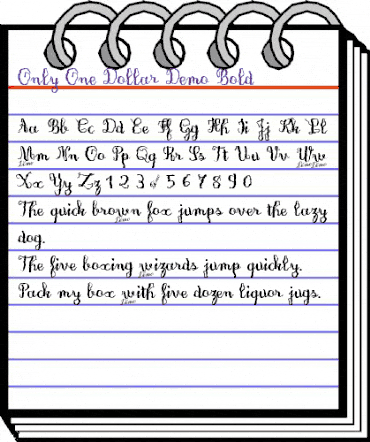 Only One Dollar Demo Bold
Aa Bb Cc Dd Ee Ff Gg Hh Ii Jj Kk Ll
Mm Nn Oo Pp Qq Rr Ss Tt Uu Vv Ww
Xx Yy Zz 1 2 3 4 5 6 7 8 9 0
The quick brown fox jumps over the lazy
dog.
The five boxing wizards jump quickly.
Pack my box with five dozen liquor jugs.